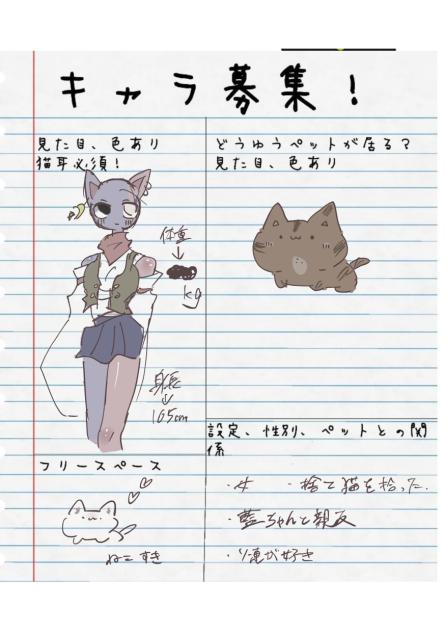 キャラ募集!
見た目、色あり
猫耳必須!
体重
↓
kg
身長
↓
165cm
どうゆうペットが居る?
見た目、色あり
設定、性別、ペットとの関
係
・女 ・捨て猫を拾った.
・藍ちゃんと親友
が好き
フリースペース
ねこ すき